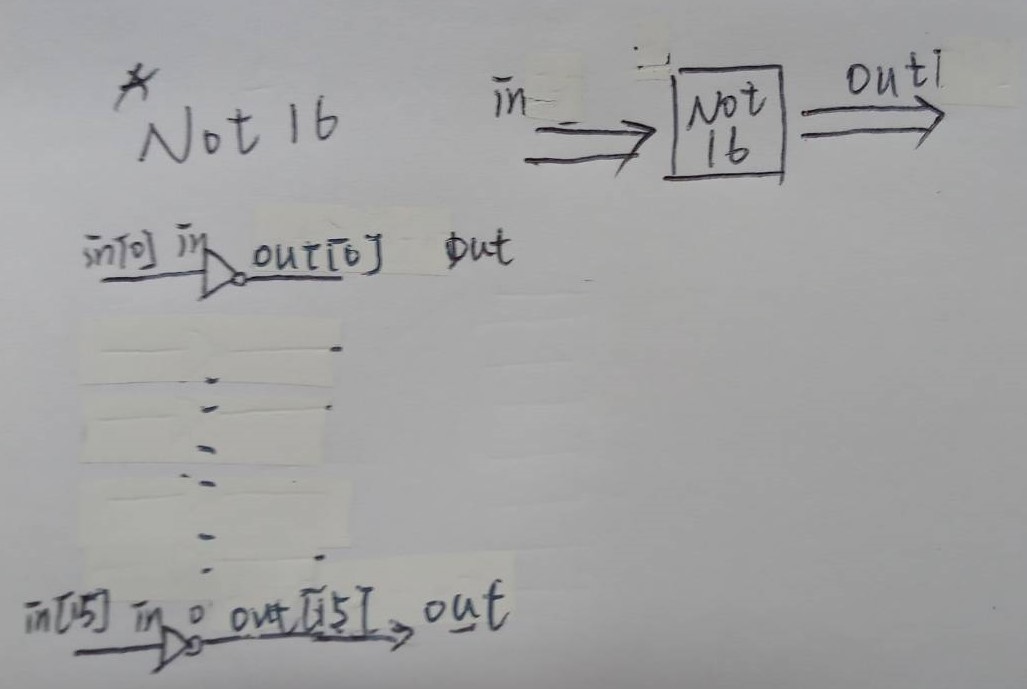 * Not 16
in
Not
16
out
in[0] in out[0] out
in[15] in out[15] out